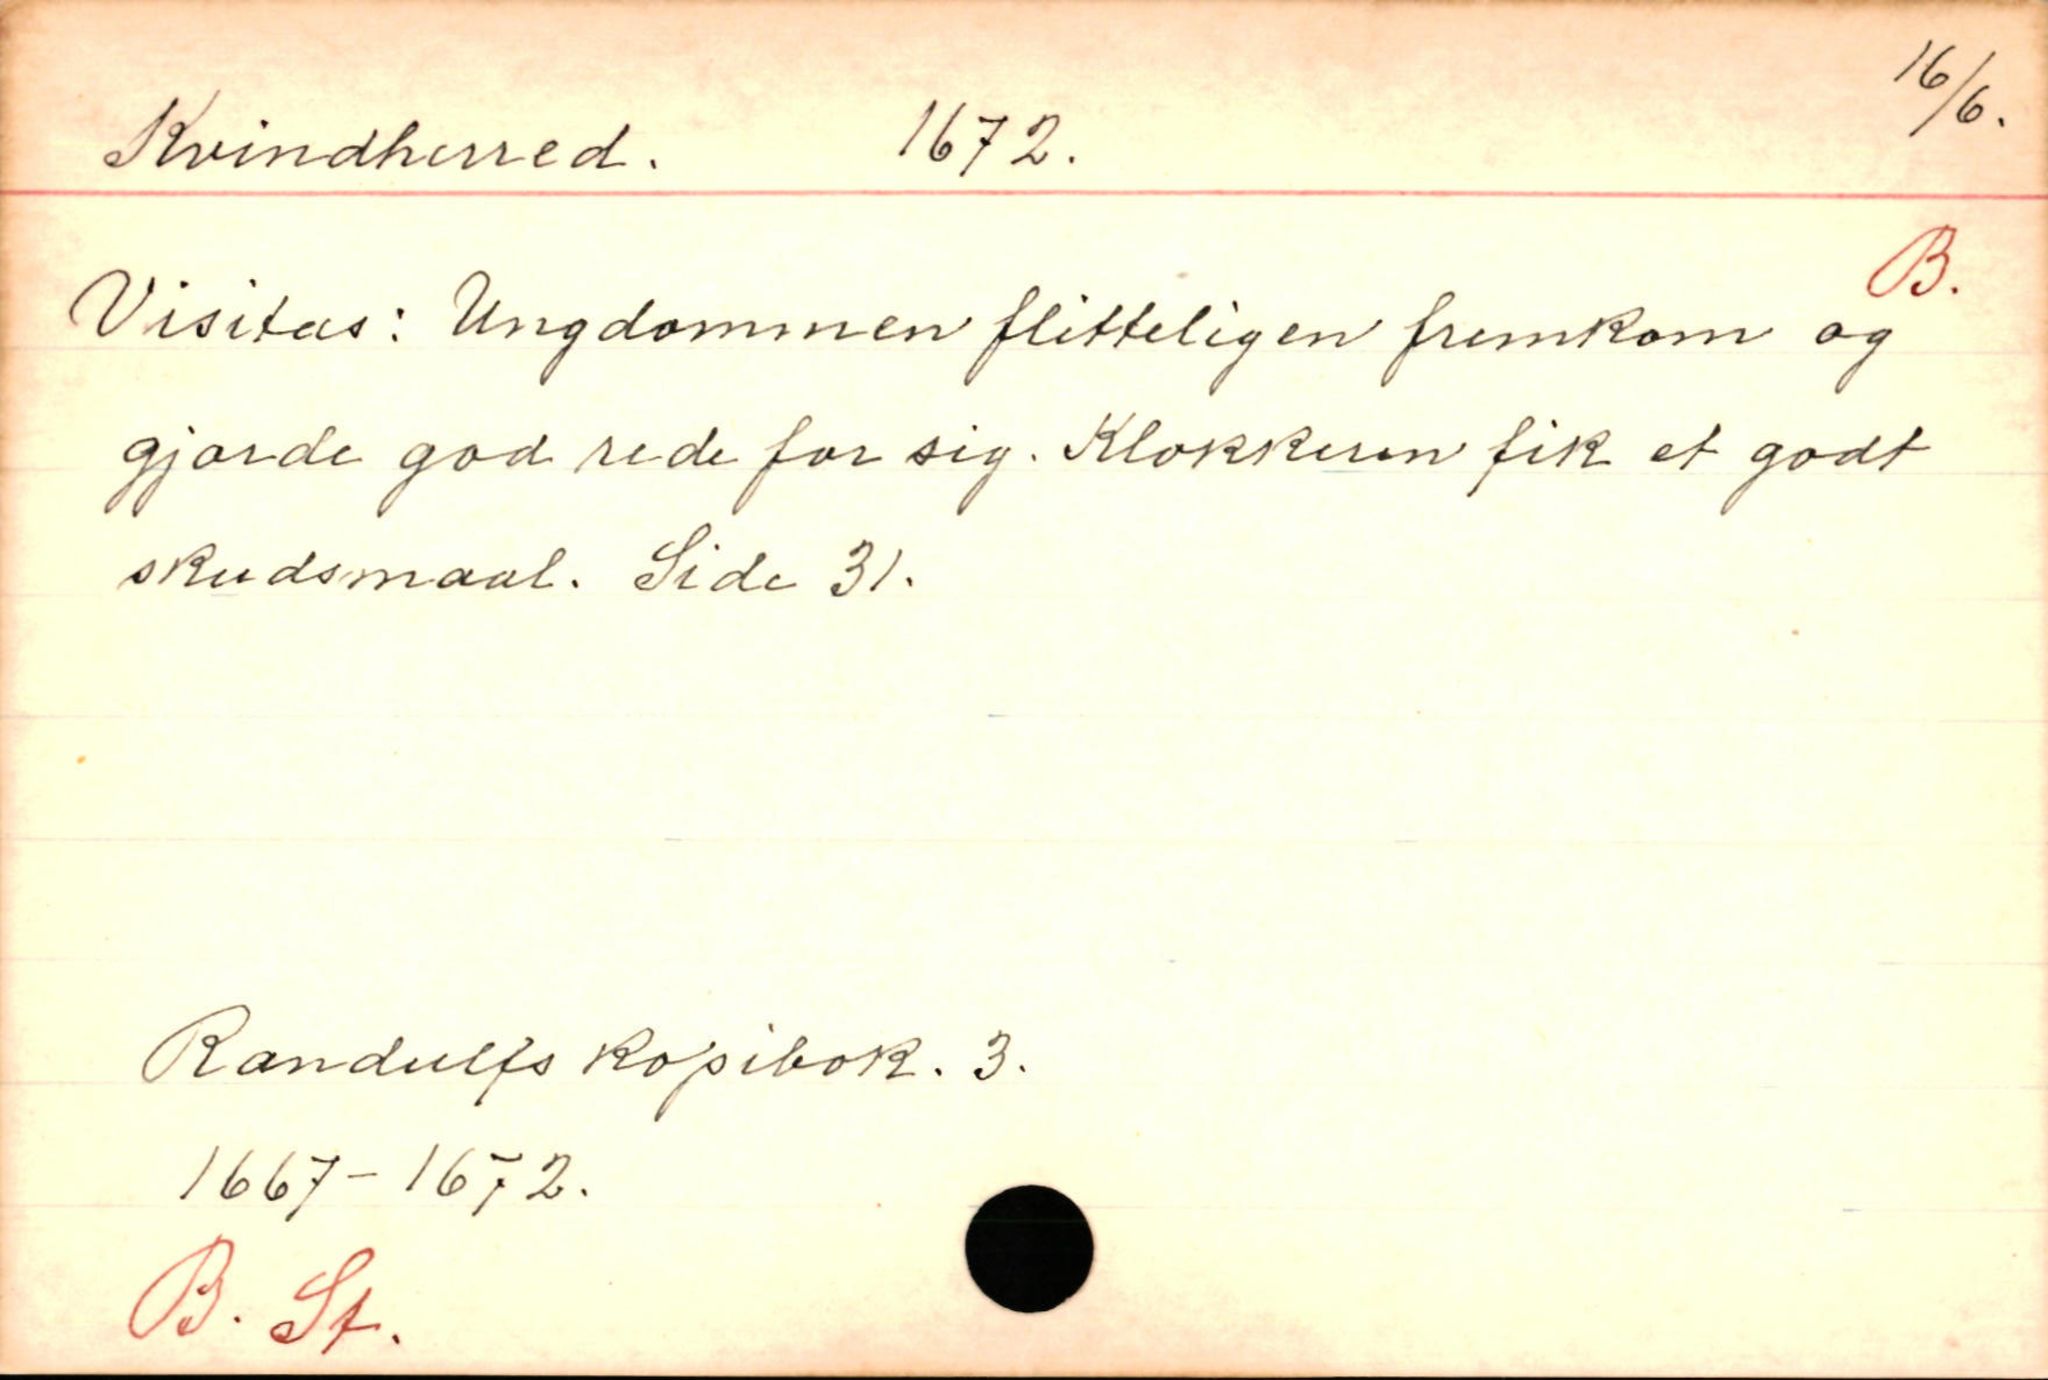 Kvindherred. 1672. 16/6.
B.
Visitas: Ungdommen flitteligen fremkom og
gjorde god rede for sig. Klokkeren fik et godt
skudsmaal. Side 31.
Randulfs kopibok. 3.
1667-1672.
B. St.